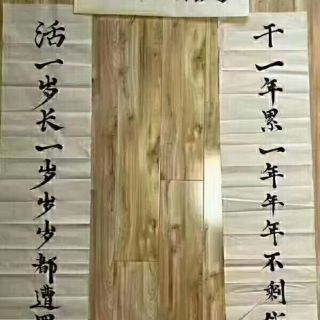 干一年累一年年年不剩
活一岁长一岁岁岁都遭